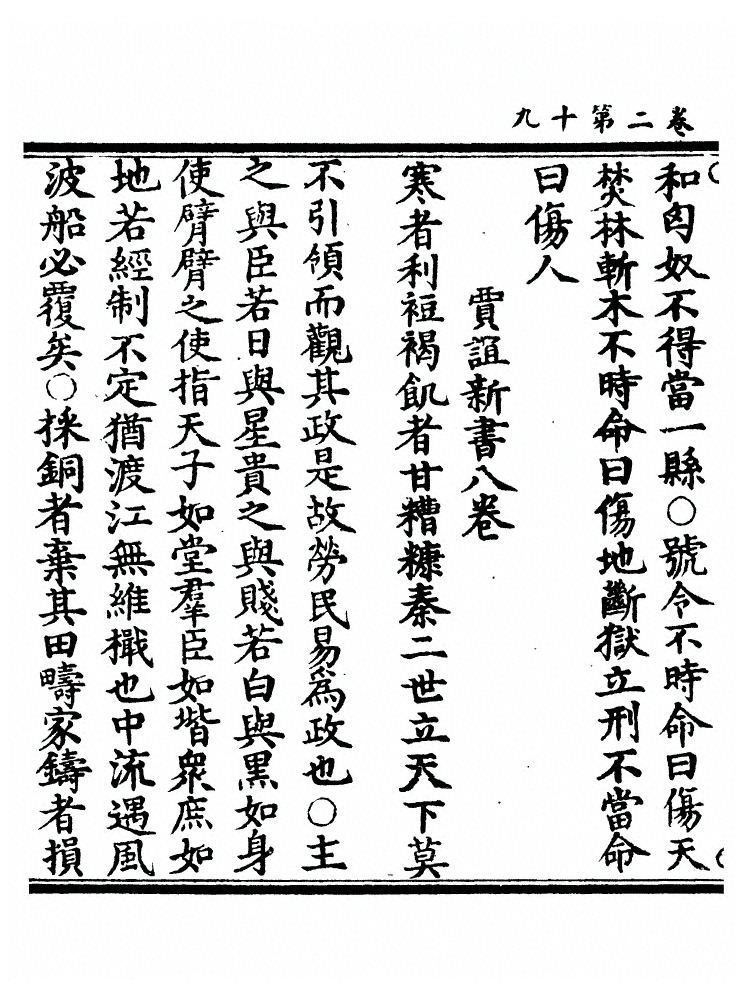 卷二第十九
和匈奴不得當一縣○號令不時命曰傷天
焚林斬木不時命曰傷地斷獄立刑不當命
曰傷人
賈誼新書八卷
寒者利裋褐飢者甘糟糠秦二世立天下莫
不引領而觀其政是故勞民易爲政也○主
之與臣若日與星貴之與賤若白與黑如身
使臂臂之使指天子如堂羣臣如堦衆庶如
地若經制不定猶渡江無維檝也中流遇風
波船必覆矣○採銅者棄其田疇家鑄者損